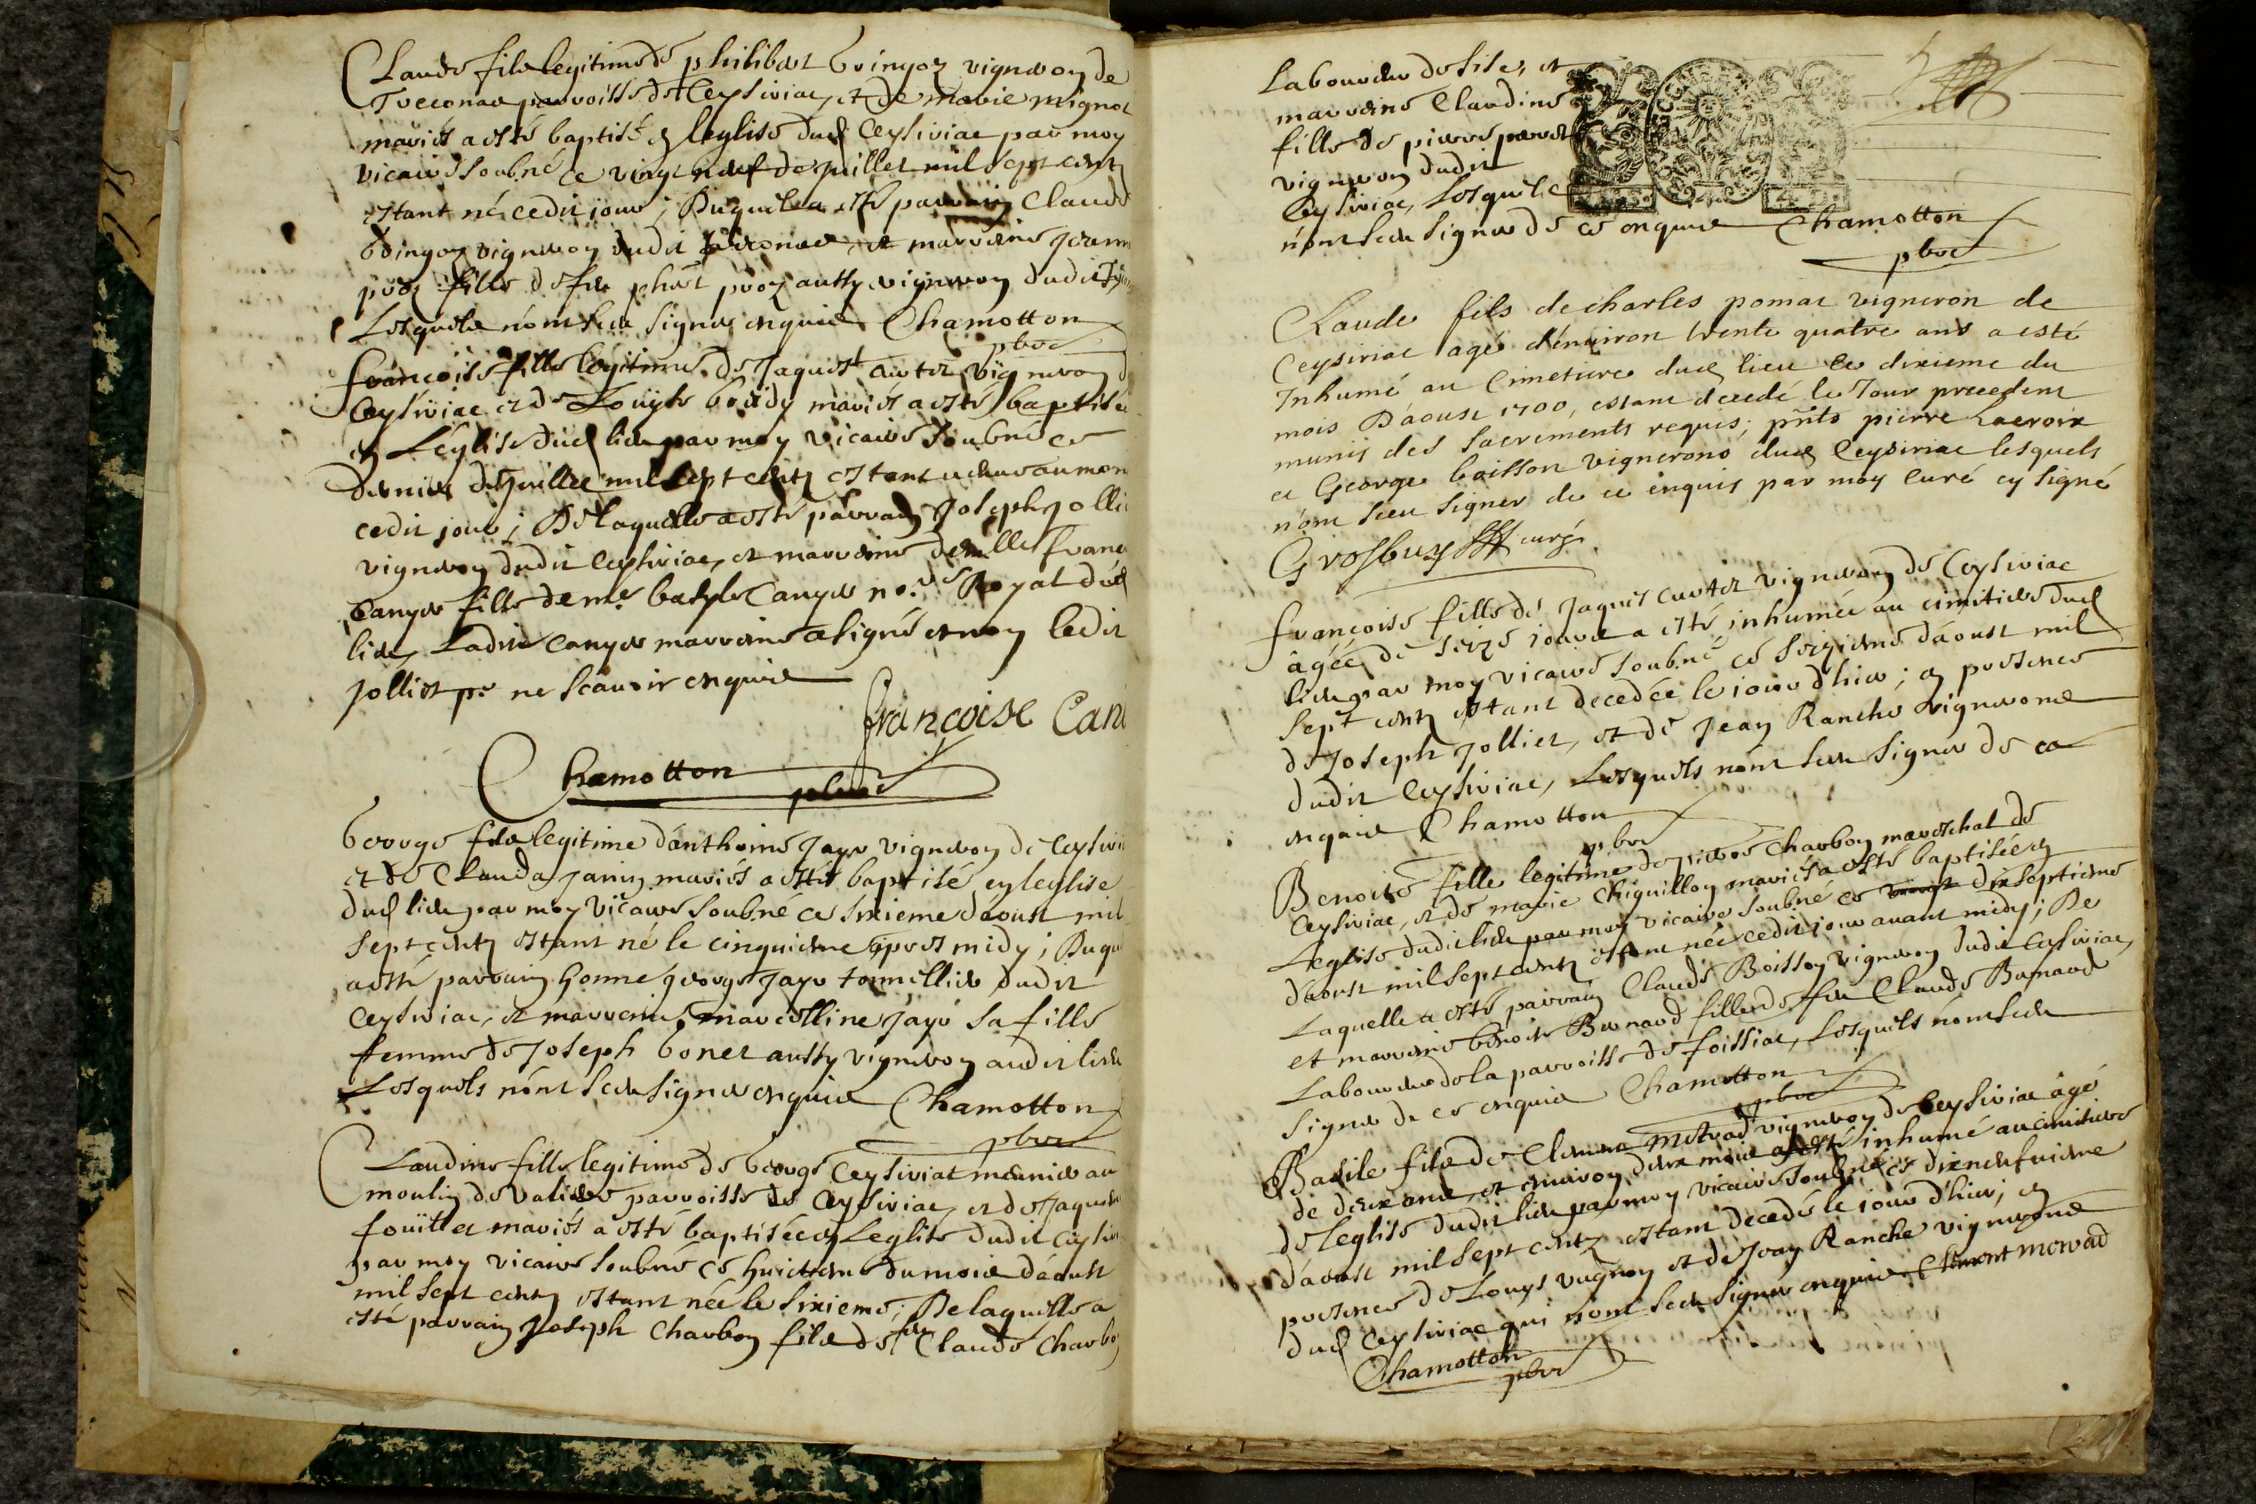 Claude fils legitime de philibert Gringoz vigneron de
Treconas parroisse de Ceysiriac, et de marie mignot
mariés a esté baptisé en leglise dud Ceysiriac par moy
vicaire soubné ce vingt neuf de juillet mil sept centz
estant né cedit jour; Duquel a esté parrain Claude
Gringoz vigneron dudit Treconas, et marreine
fille de feu phât aussy vigneron dudit
Lesquels n'ont sceu signer enquis Chamotton
pbre
francoise fille legitime de Jaques Cartet vigneron
Ceysiriac et de Louyse mariés a esté baptisée
en Leglise dud lieu par moy vicaire soubné ce
dernier de Juillet mil sept centz estant
cedit jour; De laquelle a esté parrain Joseph Jollie
vigneron dudit Ceysiriac, et marreine demlle
Canyer fille de me Canyer Royal dud
lieu, Ladite Canyer marreine a signé et non ledit
Jolliet pr ne scavoir enquis
françoise Can
Chamotton
pbre
George fils legitime d'anthoine Jayr vigneron de Ceysiri
et de Clauda Janin mariés a esté baptisé en leglise
dud lieu par moy vicaire soubné ce sixieme d'aoust mil
sept centz estant né le cinquieme apres midy; Duqu
a esté parrain honne george Jayr tonnellier dudit
Ceysiriac, et marreine marcelline Jayr sa fille
femme de Joseph Gonet aussy vigneron audit lieu
Lesquels n'ont sceu signer enquis Chamotton
pbre
Claudine fille legitime de George Ceysiriat meunier au
moulin de parroisse de Ceysiriac, et de
fouillet mariés a esté baptisée en Leglise dudit Ceysiri
par moy vicaire soubné ce huictieme du mois d'aoust
mil sept centz estant née le sixieme; De laquelle a
esté parrain Joseph Charbon fils de feu Claude Charbo
Laboureur de et
marreine Claudine
fille de pierre
vigneron dudit
Ceysiriac, Lesquels
n'ont sceu signer de ce enquis Chamotton
pbre
Claude fils de charles pomat vigneron de
Ceysiriac agé d'environ trente quatre ans a esté
Inhumé au Cimetiere dud lieu le dixieme du
mois D'aoust 1700, estant decedé le Jour precedent
munis des sacrements requis; pnts pierre Lacroix
et George boisson vignerons dud Ceysiriac lesquels
n'ont sceu signer de ce enquis par moy curé cy signé
Grosbuys curé
françoise fille de Jaques Cartet vigneron de Ceysiriac
âgée de seize jours a esté inhumée au cimitiere dud
lieu par moy vicaire soubné ce seizieme d'aoust mil
sept centz estant decedée le jour d'hier; en presence
de Joseph Jolliet, et de Jean Ranche vignerons
dudit Ceysiriac, Lesquels n'ont sceu signer de ce
enquis Chamotton
pbre
Benoite fille legitime de pierre Charbon mareschal de
Ceysiriac, et de marie Chiquillon mariés a esté baptisée en
Leglise dudit lieu par moy vicaire soubné ce dixseptieme
d'aoust mil sept centz estant née cedit jour avant midy; De
Laquelle a esté parrain Claude Boisson vigneron dudit Ceysiriac,
et marreine benoite Bernard fille de feu Claude Bernard
Laboureur de la parroisse de foissiac, Lesquels n'ont sceu
signer de ce enquis Chamotton
pbre
Basile fils de vigneron de Ceysiriac âgé
de deux ans et environ deux mois a esté inhumé au cimitiere
de leglise dudit lieu par moy vicaire soubné ce dixneufvieme
d'aoust mil sept centz estant decedé le jour d'hier; en
presence de Louys et de Jean Ranche vignerons
dud Ceysiriac qui n'ont sceu signer enquis
Chamotton
pbre